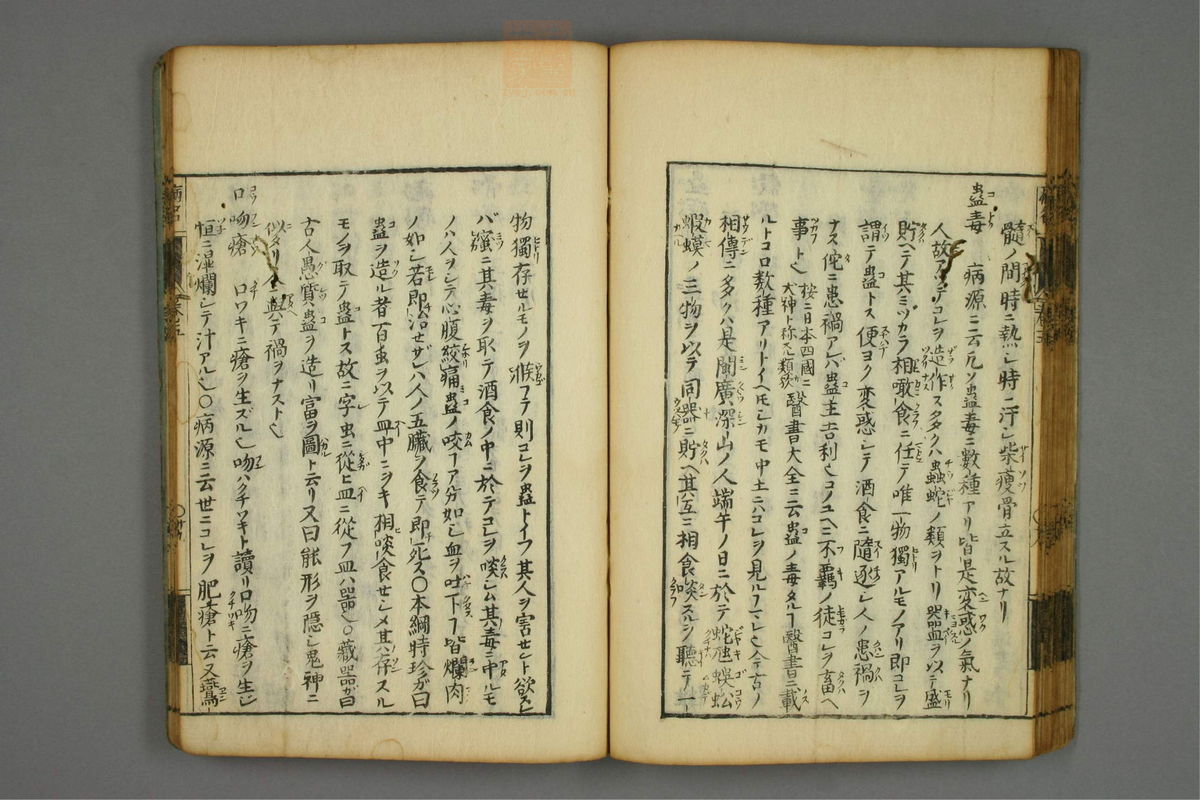 髓ノ間時ニ熱シ時ニ汗シ柴痩骨立スル故ナリ
蠱毒 病源ニ云凡ソ蠱毒ニ數種アリ皆是変惑ノ氣ナリ
人故アテコレヲ造作ス多クハ蟲蛇ノ類ヲトリ器皿ヲ以テ盛
貯ヘテ其ミツカラ相噉食ニ任テ唯一物獨アルモノアリ即コレヲ
謂テ蠱トス便ヨク変惑シテ酒食ニ隨逐シ人ノ患禍ヲ
ナス佗ニ患禍アレバ蠱主吉利也コノユヘニ不羈ノ徒コレヲ畜ヘ
事ト也 按ニ日本四國ニ犬神ト称スル類歟 醫書大全ニ云蠱ノ毒タルヿ醫書ニ載
ルトコロ数種アリトイヘモシカモ中土ニハコレヲ見ルヿマレ也今古ノ
相傳ニ多クハ是閩廣深山ノ人端午ノ日ニ於テ蛇虺蜈蚣
蝦蟆ノ三物ヲ以テ同器ニ貯ヘ其互ニ相食啖スルヲ聽テ一
物獨存セルモノヲ候フテ則コレヲ蠱トイフ其人ヲ害セント欲スレ
バ竊ニ其毒ヲ取テ酒食ノ中ニ於テコレヲ啖シム其毒ニ中ルモ
ノハ人ヲシテ心腹絞痛蠱ノ咬フカ如シ血ヲ吐下ヿ皆爛肉
ノ如シ若即治セザレハ人ノ五臓ヲ食テ即死ス〇本綱時珍ガ曰
蠱ヲ造ル者百虫ヲ以テ皿中ニヲキ相啖食セシメ其存スル
モノヲ取テ蠱トス故ニ字虫ニ從ヒ皿ニ從フ皿ハ器也〇藏器ガ曰
古人愚質蠱ヲ造リ富ヲ圖ト云リ又曰能形ヲ隱シ鬼神ニ
似タリ人ニ與テ禍ヲナスト也
口吻瘡 口ワキニ瘡ヲ生ズル也吻ハクチワキト讀リ口吻ニ瘡ヲ生シ
恒ニ湿爛シテ汁アル也〇病源ニ云世ニコレヲ肥瘡ト云又鷰